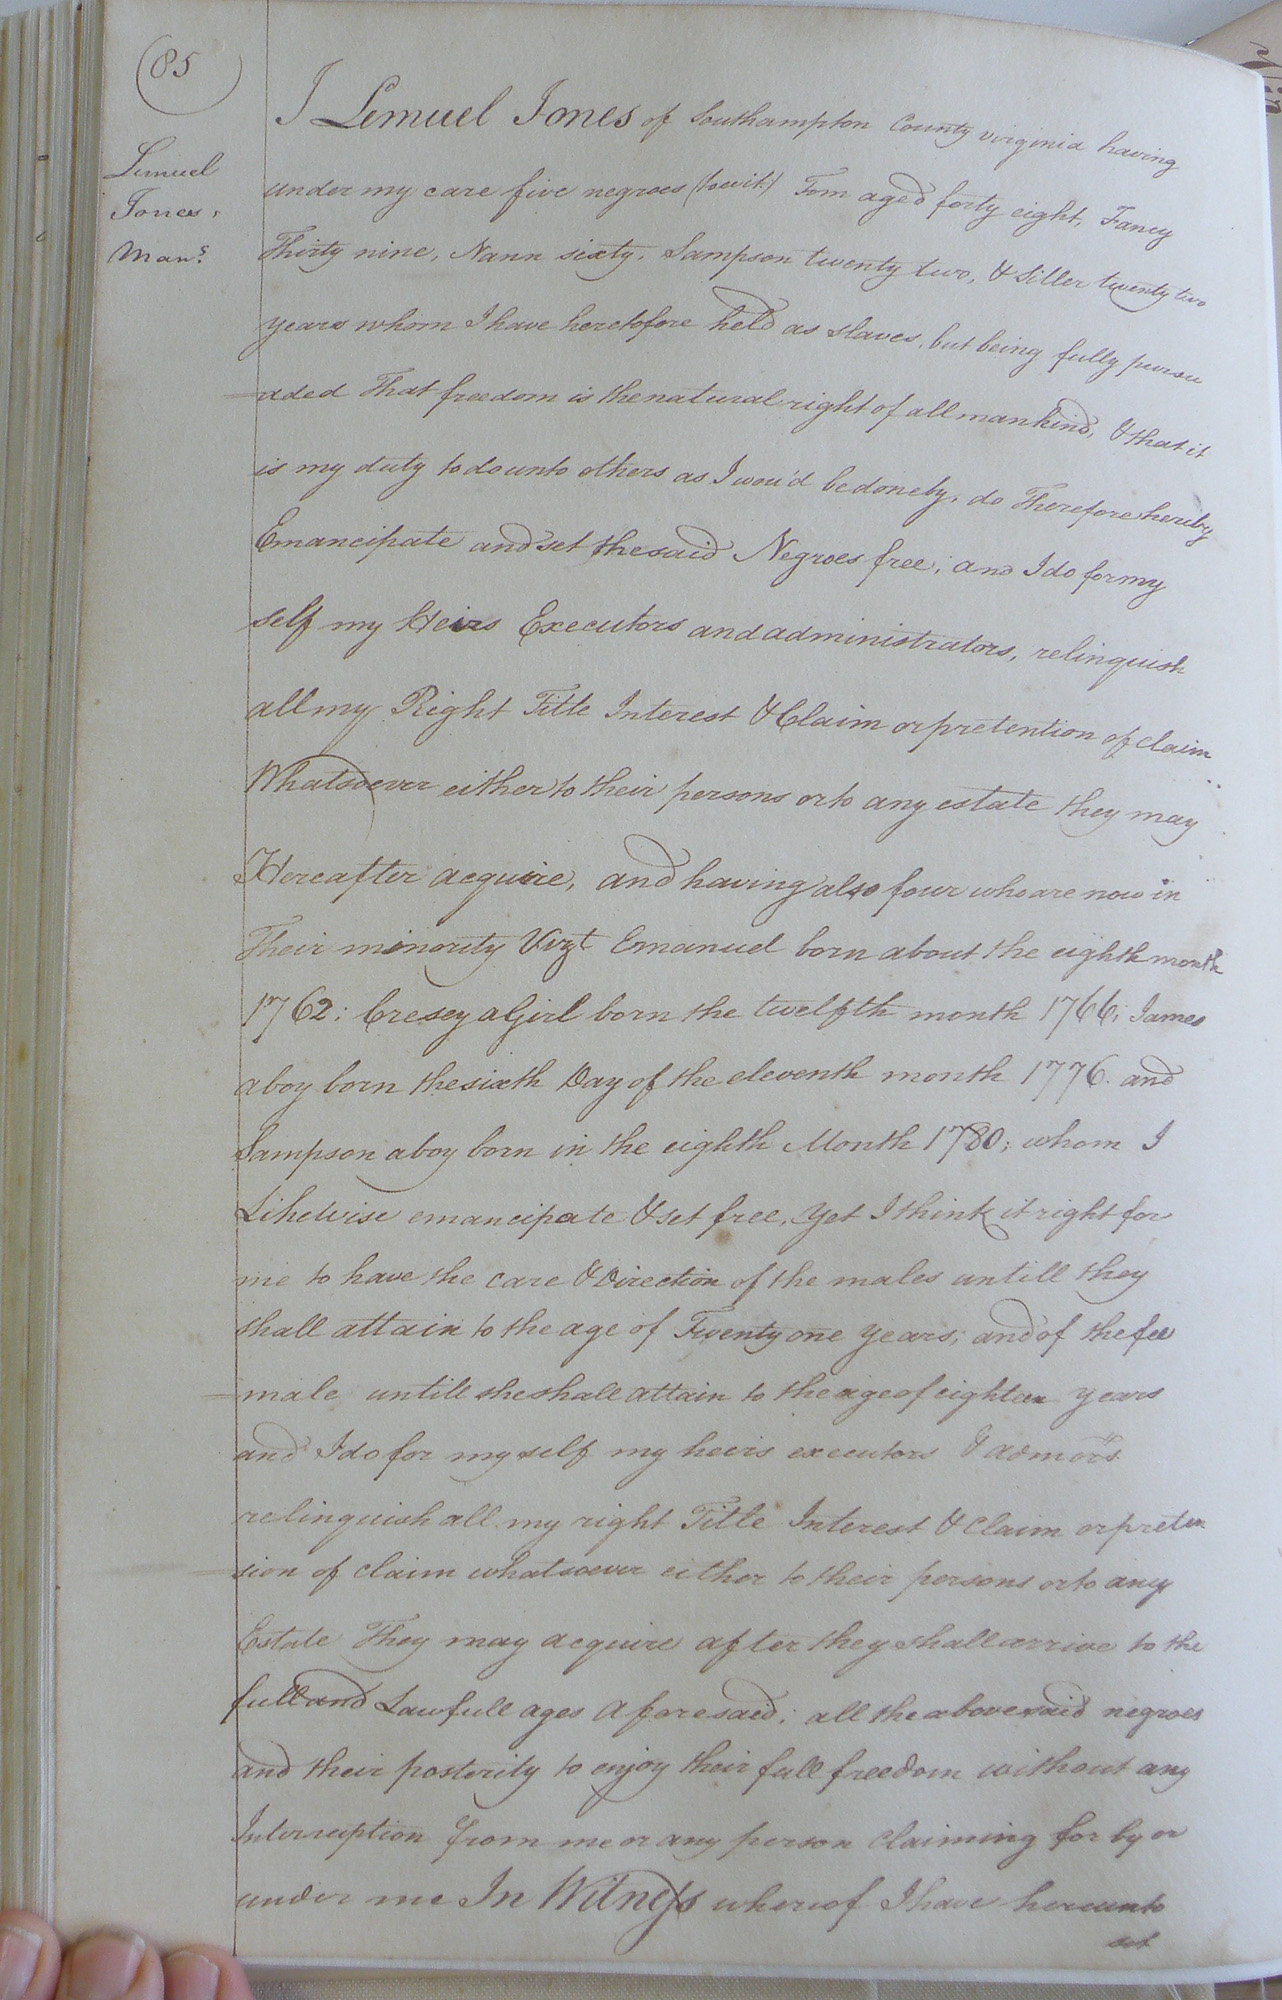 85
Lemuel
Jones,
Mans.
I Lemuel Jones of Southampton County virginia having
under my care five negroes (towit) Tom aged forty eight, Fancy
Thirty nine, Nann sixty, Sampson twenty two, & Siller twenty two
years whom I have heretofore held as slaves, but being fully persu
aded That freedom is the natural right of all mankind, & that it
is my duty to do unto others as I wou'd be done by, do Therefore hereby
Emancipate and set the said Negroes free; and I do for my
self my Heirs Executors and administrators, relinquish
all my Right Title Interest & Claim or pretention of claim
Whatsoever either to their persons or to any estate they may
Hereafter acquire, and having also four who are now in
Their minority Vizt Emanuel born about the eighth month
1762; Cresey a Girl born the twelfth month 1766; James
a boy born the sixth Day of the eleventh month 1776. and
Sampson a boy born in the eighth Month 1780; whom I
Likewise emancipate & set free, Yet I think it right for
me to have the care & Direction of the males untill they
shall attain to the age of Twenty one years; and of the fee
male untill she shall attain to the age of eighteen years
and I do for my self my heirs executors & admors
relinquish all my right Title Interest & Claim or preten
sion of claim whatsoever either to their persons or to any
Estate They may acquire after they shall arrive to the
full and Lawfull ages aforesaid; all the abovesaid negroes
and their posterity to enjoy their full freedom without any
Interruption from me or any person claiming for by or
under me In Witness whereof I have hereunto
set